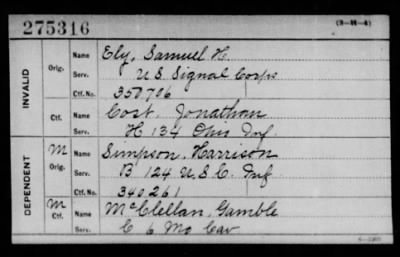 275316
(3-H-4)
INVALID
Orig. Name Ely, Samuel H.
Serv. U.S. Signal Corps
Ctf. No. 350706
Ctf. Name Cost, Jonathan
Serv. H 134 Ohio Inf
DEPENDENT
M Orig. Name Simpson, Harrison
Serv. B 124 U.S.C. Inf
Ctf. No. 340261
M Ctf. Name McClellan, Gamble
Serv. C 6 Mo Cav